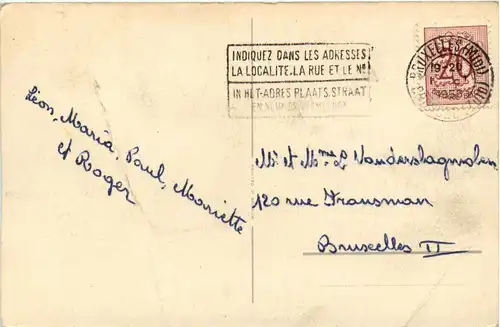 INDIQUEZ DANS LES ADRESSES
LA LOCALITE.LA RUE ET LE No
IN HET-ADRES PLAATS.STRAAT
BRUXELLES (MIDI)
19-20
Léon, Maria, Paul, Mariette
et Roger
Mr et Mmes Vanderslagmolen
120 rue Fransman
Bruxelles II